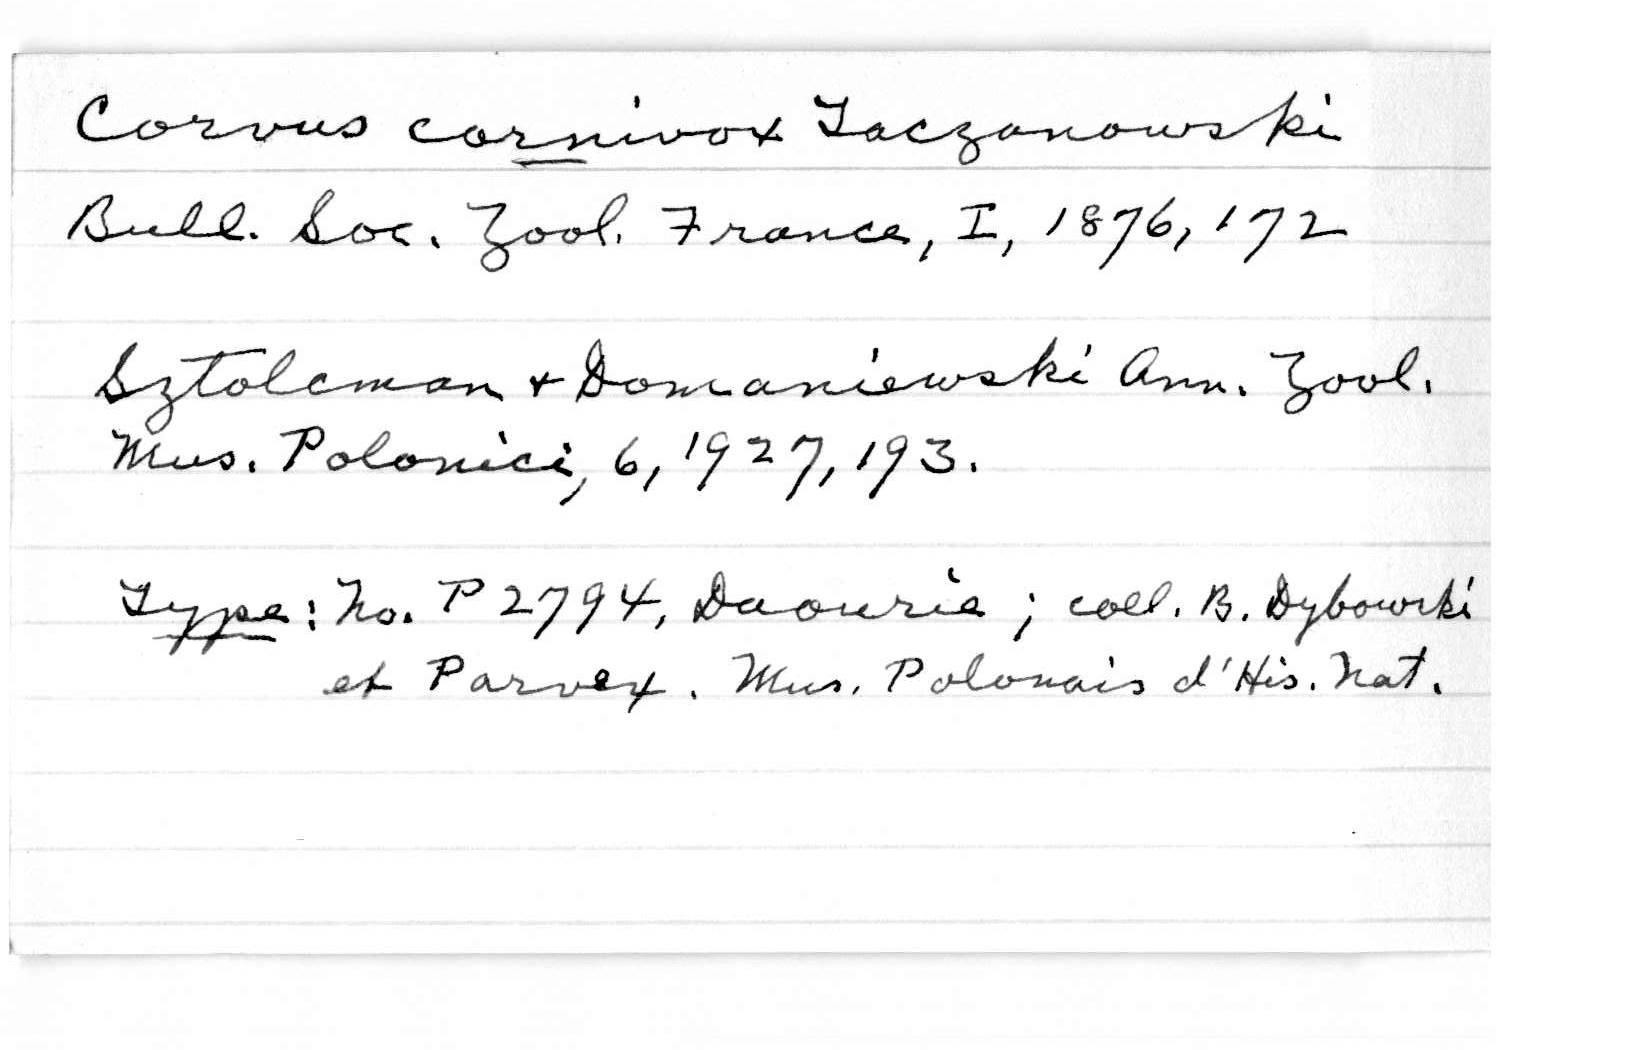 Corvus cornivox Taczanowski
Bull. Soc. Zool. France, I, 1876, 172
Sztolcman + Domaniewski Ann. Zool.
Mus. Polonici, 6, 1927, 193.
Type: No. P 2794, Daourie; coll. B. Dybowski
et Parvex. Mus. Polonais d'His. Nat.